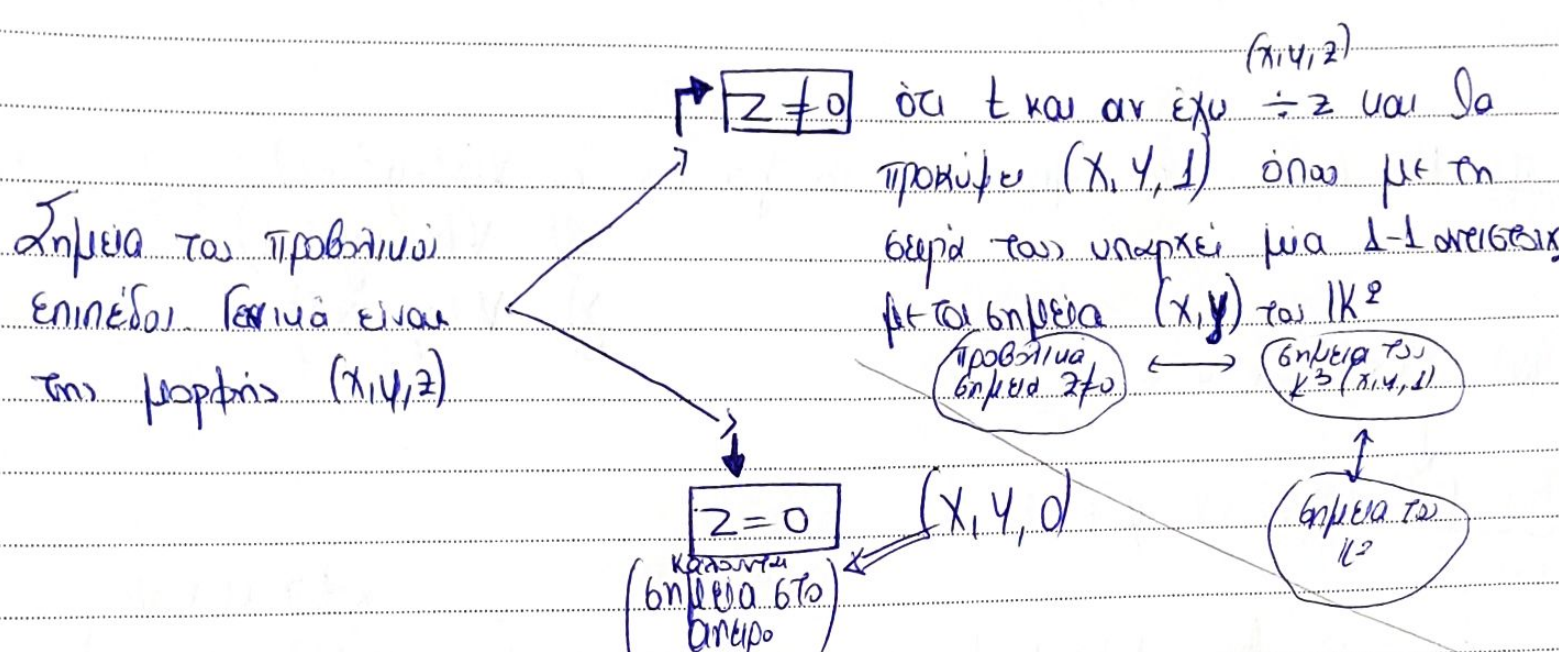 Σημεία του προβολικού
επιπέδου. Γενικά είναι
της μορφής (x,y,z)
z ≠ 0
(x,y,z)
ότι t και αν έχω ÷ z και θα
προκύψει (x, y, 1) όπου με τη
σειρά τους υπαρχει μια 1-1 αντιστοιχ
με τα σημεία (x,y) του K²
προβολικά
σημεία z≠0
σημεία του
K³ (x,y,1)
σημεία του
K²
z = 0
(x, y, 0)
καλουνται
σημεία στο
απειρο